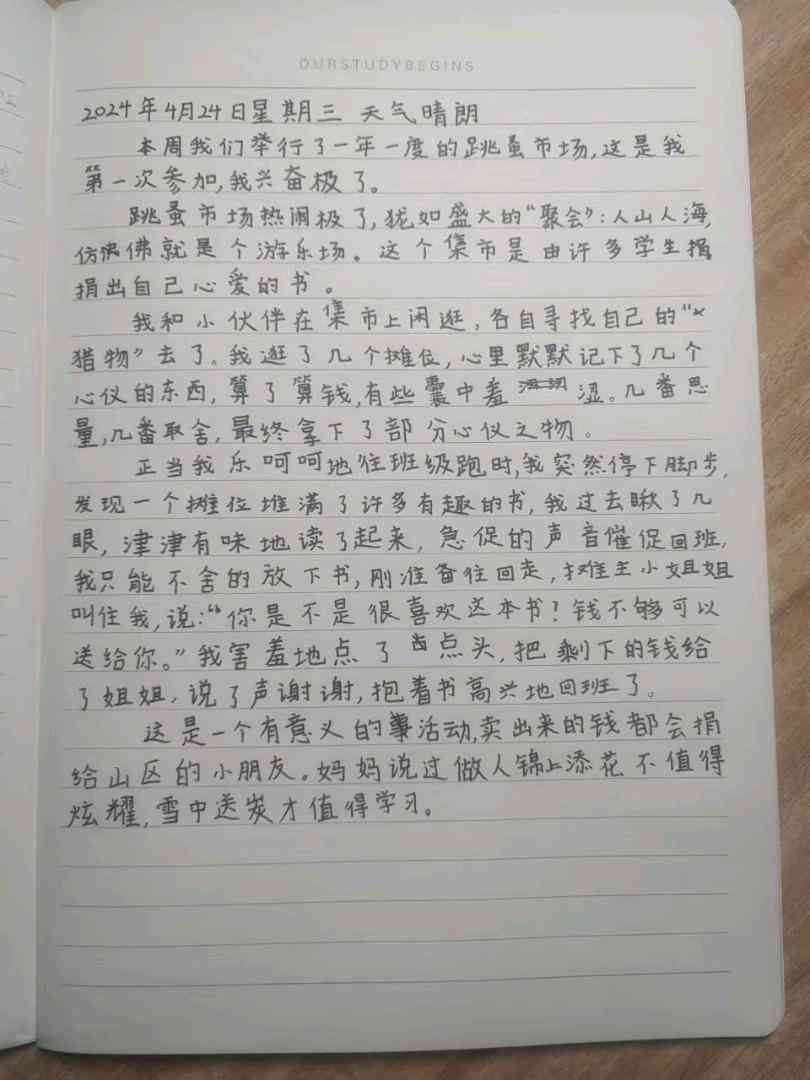 OURSTUDYBEGINS
2024年4月24日星期三 天气晴朗
本周我们举行了一年一度的跳蚤市场,这是我
第一次参加,我兴奋极了。
跳蚤市场热闹极了,犹如盛大的“聚会”:人山人海,
仿佛就是个游乐场。这个集市是由许多学生捐
捐出自己心爱的书。
我和小伙伴在集市上闲逛,各自寻找自己的“
猎物”去了。我逛了几个摊位,心里默默记下了几个
心仪的东西,算了算钱,有些囊中羞涩。几番思
量,几番取舍,最终拿下了部分心仪之物。
正当我乐呵呵地往班级跑时,我突然停下脚步,
发现一个摊位堆满了许多有趣的书,我过去瞅了几
眼,津津有味地读了起来,急促的声音催促回班,
我只能不舍的放下书,刚准备往回走,摊主小姐姐
叫住我,说:“你是不是很喜欢这本书?钱不够可以
送给你。”我害羞地点了点头,把剩下的钱给
了姐姐,说了声谢谢,抱着书高兴地回班了。
这是一个有意义的活动,卖出来的钱都会捐
给山区的小朋友。妈妈说过做人锦上添花不值得
炫耀,雪中送炭才值得学习。